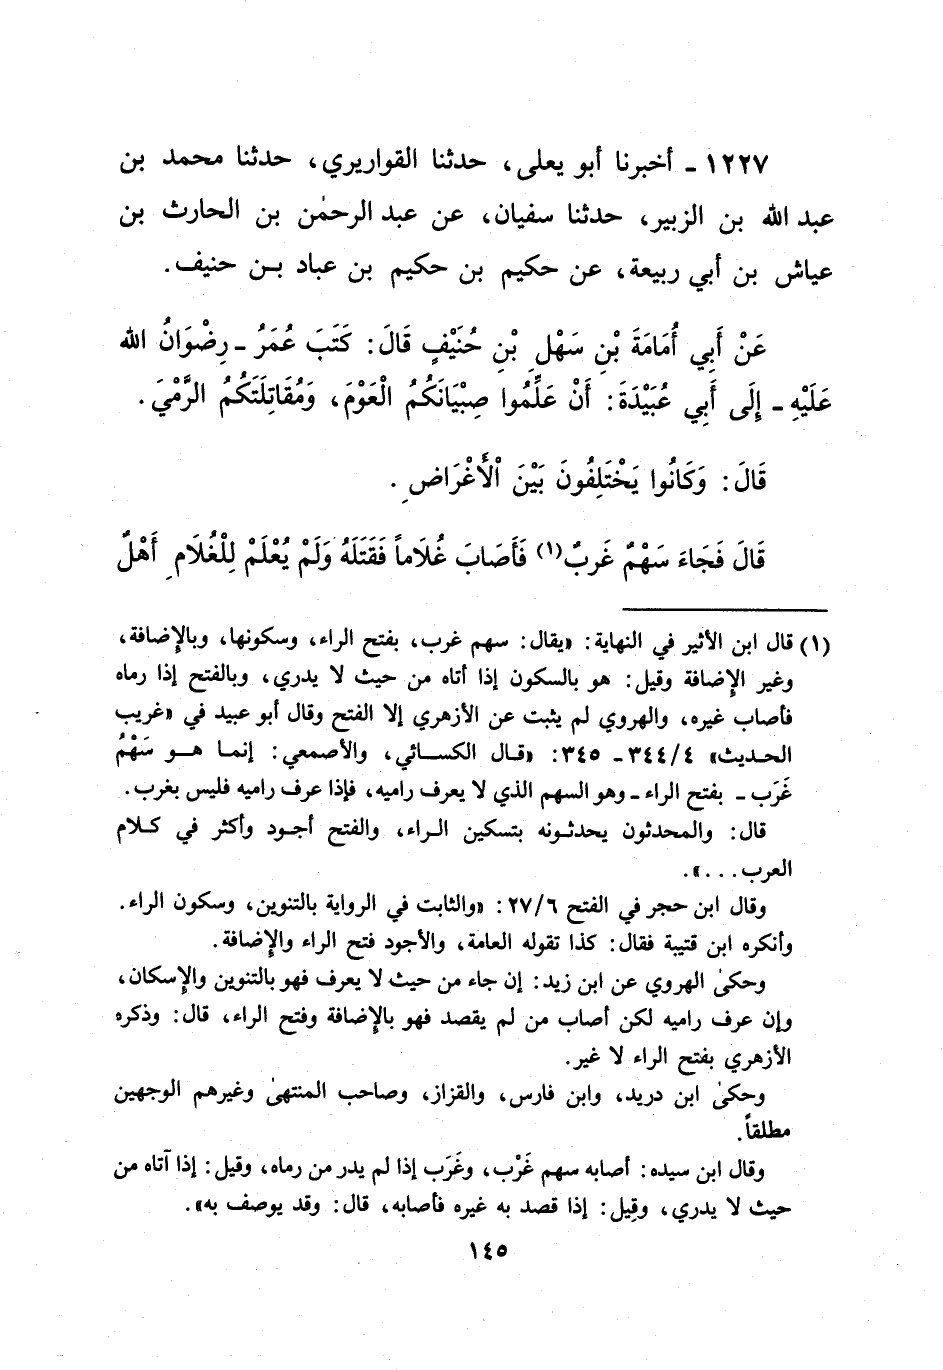 ١٢٢٧ ـ أخبرنا أبو يعلى، حدثنا القواريري، حدثنا محمد بن
عبد الله بن الزبير، حدثنا سفيان، عن عبد الرحمٰن بن الحارث بن
عياش بن أبي ربيعة، عن حكيم بن حكيم بن عباد بـن حنيف.
عَنْ أَبِي أُمَامَةَ بْنِ سَهْلِ بْنِ حُنَيْفٍ قَالَ: كَتَبَ عُمَرُ ـ رِضْوَانُ الله
عَلَيْهِ ـ إِلَى أَبِي عُبَيْدَةَ: أَنْ عَلِّمُوا صِبْيَانَكُمُ الْعَوْمَ، وَمُقَاتِلَتَكُمُ الرَّمْيَ.
قَالَ: وَكَانُوا يَخْتَلِفُونَ بَيْنَ الْأَغْرَاضِ.
قَالَ فَجَاءَ سَهْمٌ غَرِبٌ(١) فَأَصَابَ غُلَاماً فَقَتَلَهُ وَلَمْ يُعْلَمْ لِلْغُلَامِ أَهْلٌ
(١) قال ابن الأثير في النهاية: «يقال: سهم غرب، بفتح الراء، وسكونها، وبالإضافة،
وغير الإضافة وقيل: هو بالسكون إذا أتاه من حيث لا يدري، وبالفتح إذا رماه
فأصاب غيره، والهروي لم يثبت عن الأزهري إلا الفتح وقال أبو عبيد في «غريب
الحديث» ٣٤٤/٤ ـ ٣٤٥: «قـال الكسـائي، والأصمعي: إنمـا هـو سَهْمُ
غَرَب ـ بفتح الراء ـ وهو السهم الذي لا يعرف راميه، فإذا عرف راميه فليس بغرب.
قال: والمحدثون يحدثـونه بتسكين الـراء، والفتح أجـود وأكثر في كـلام
العرب...».
وقال ابن حجر في الفتح ٢٧/٦: «والثابت في الرواية بالتنوين، وسكون الراء.
وأنكره ابن قتيبة فقال: كذا تقوله العامة، والأجود فتح الراء والإضافة.
وحكىٰ الهروي عن ابن زيد: إن جاء من حيث لا يعرف فهو بالتنوين والإسكان،
وإن عرف راميه لكن أصاب من لم يقصد فهو بالإضافة وفتح الراء، قال: وذكره
الأزهري بفتح الراء لا غير.
وحكىٰ ابن دريد، وابن فارس، والقزاز، وصاحب المنتهىٰ وغيرهم الوجهين
مطلقاً.
وقال ابن سيده: أصابه سهم غَرْب، وغَرَب إذا لم يدر من رماه، وقيل: إذا آتاه من
حيث لا يدري، وقيل: إذا قصد به غيره فأصابه، قال: وقد يوصف به».
١٤٥